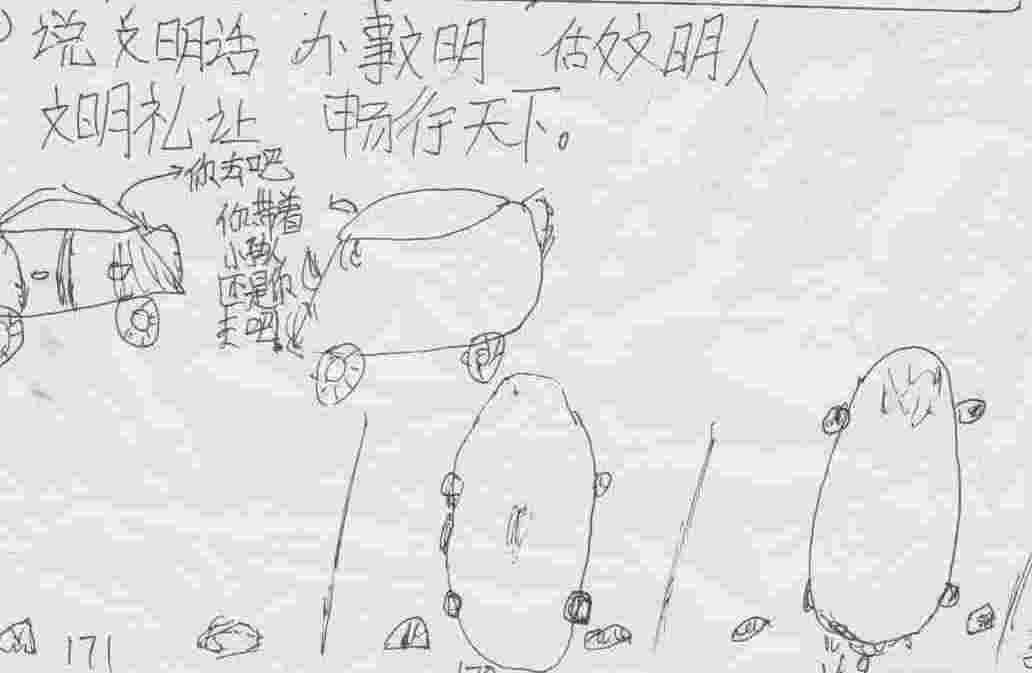 说文明话 办事文明 做文明人
文明礼让 畅行天下。
你去吧
你带着
小孩
还是你
走吧
171